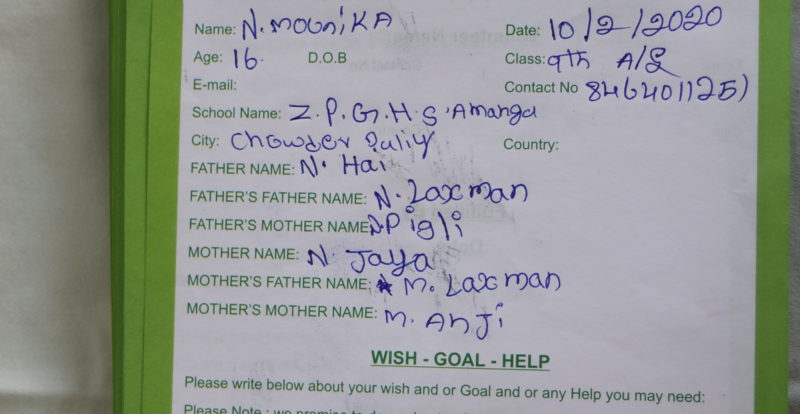 Name: N. MOUNiKA Date: 10/2/2020
Age: 16. D.O.B Class: 9th A/S
E-mail: Contact No 8464011251
School Name: Z.P.G.H.S Amangal
City: Chowder Pally Country:
FATHER NAME: N. Hari
FATHER'S FATHER NAME: N. Laxman
FATHER'S MOTHER NAME: N.Pigli
MOTHER NAME: N. Jaya
MOTHER'S FATHER NAME: M. Laxman
MOTHER'S MOTHER NAME: M. Anji
WISH - GOAL - HELP
Please write below about your wish and or Goal and or any Help you may need:
Please Note : we promise to